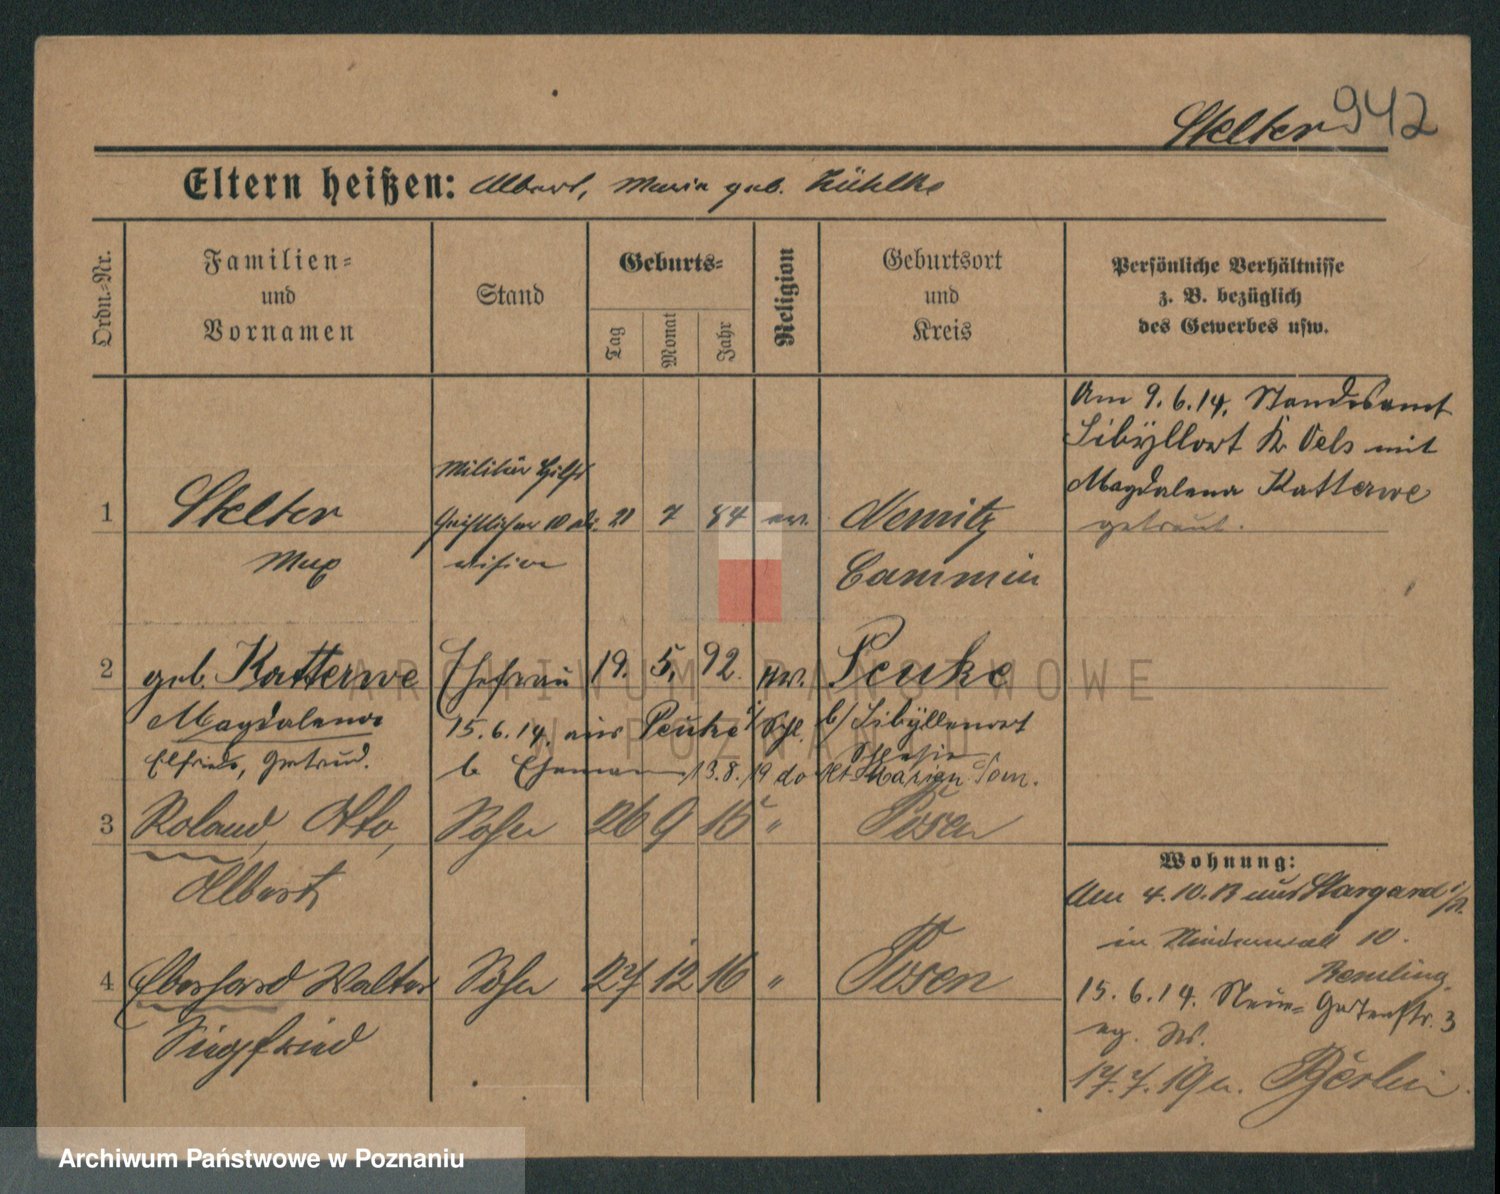 Stelter 942
Eltern heißen: Albert, Maria geb. Kühlke
Ordn.-Nr.
Familien-
und
Vornamen
Stand
Geburts-
Tag
Monat
Jahr
Religion
Geburtsort
und
Kreis
Persönliche Verhältnisse
z. B. bezüglich
des Gewerbes usw.
Am 9.6.14. Standesamt
Sibyllort Kr Oels mit
Magdalena Katterwe
getraut.
Militär Hilfs
1 Stelter Geistlicher 10 21 7 84 ev. Nemitz
Max Cammin
2 geb. Katterwe Ehefrau 19. 5. 92. ev. Peuke
Magdalena 15.6.14. aus Peuke b/ Sibyllenort
Elfriede, Gertrud. b Ehemann 13.8.19 do Marien Pom.
3 Roland, Otto, Sohn 26 9 15 " Posen
Albert
4 Eberhard Walter Sohn 27 12 16 " Posen
Siegfried
Wohnung:
Am 4.10.13 aus Stargard i/P.
in 10.
15.6.14. Neue- Gartenstr. 3
17.7.19 n. Berlin.
ARCHIWUM PAŃSTWOWE
W POZNANIU
Archiwum Państwowe w Poznaniu